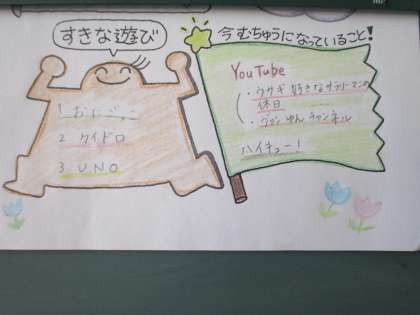 すきな遊び
1 おにごっこ
2 ケイドロ
3 UNO
今むちゅうになっていること!
YouTube
・ウサギ好きなサラリーマンの
休日
ハイキュー!